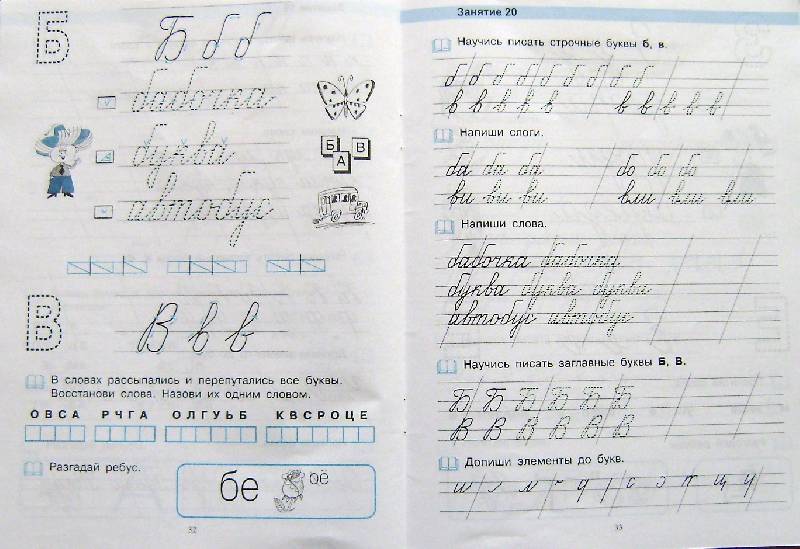 Б Б б б
бабочка
буква
Б А В
автобус
В В в в
В словах рассыпались и перепутались все буквы.
Восстанови слова. Назови их одним словом.
ОВСА РЧГА ОЛГУЬБ КВСРОЦЕ
Разгадай ребус.
бе бё
32
Занятие 20
Научись писать строчные буквы б, в.
б б б б б б б б б
в в в в в в в в в в
Напиши слоги.
ба ба ба бо бо бо
ви ви ви вли вли вли
Напиши слова.
бабочка бабочка
буква буква буква
автобус автобус
Научись писать заглавные буквы Б, В.
Б Б Б Б Б Б
В В В В В В
Допиши элементы до букв.
33